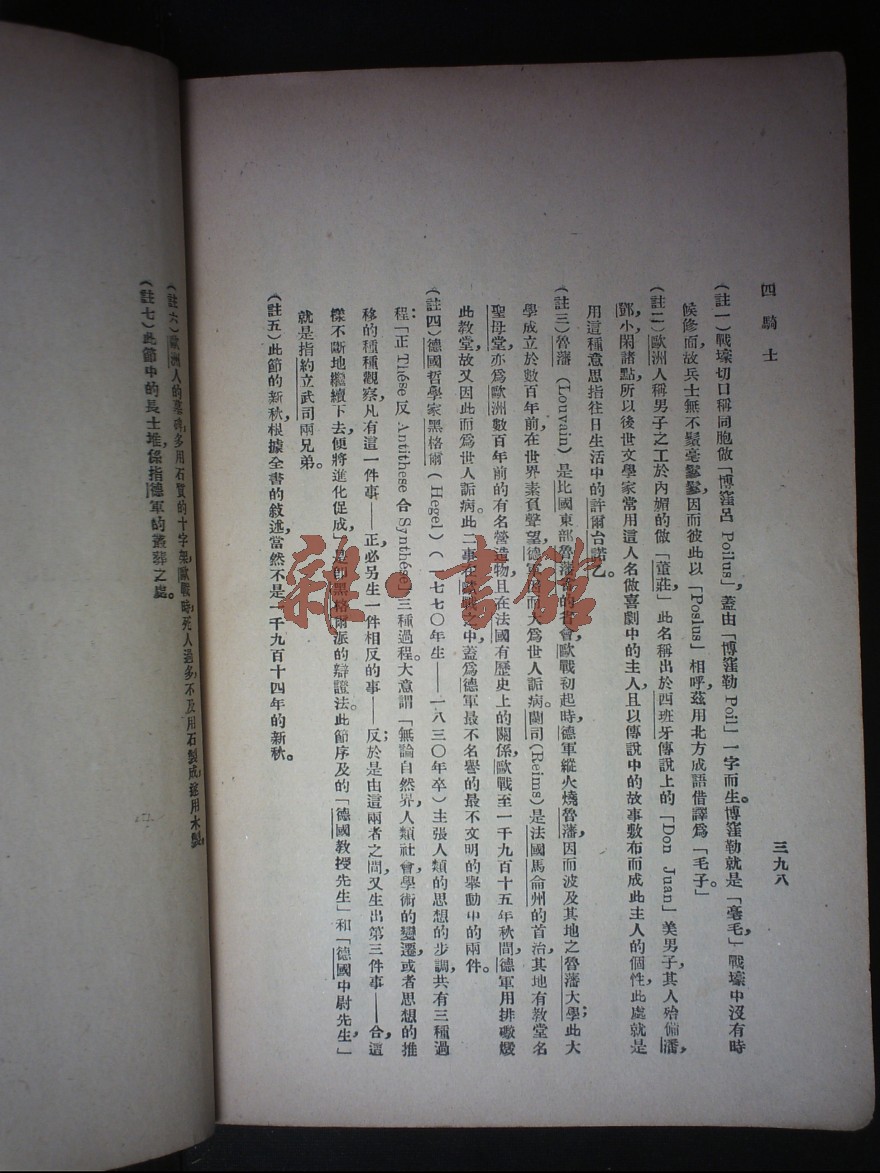 四騎士
三九八
(註一)戰壕切口稱同胞做「博窪呂 Poilus」,蓋由「博窪勒 Poil」一字而生。博窪勒就是「毫毛」,戰壕中沒有時
候修面,故兵士無不鬚毫鬖鬖,因而彼此以「Poslus」相呼,茲用北方成語借譯爲「毛子」。
(註二)歐洲人稱男子之工於內媚的做「董莊」,此名稱出於西班牙傳說上的「Don Juan」美男子,其人殆備潘,
鄧,小閑諸點,所以後世文學家常用這人名做喜劇中的主人,且以傳說中的故事敷布而成此主人的個性,此處就是
用這種意思指往日生活中的許爾台諾乙。
(註三)魯藩(Louvain)是比國東部魯藩省的省會,歐戰初起時,德軍縱火燒魯藩,因而波及其地之魯藩大學;此大
學成立於數百年前,在世界素負聲望,德軍因而大爲世人詬病。蘭司(Reims)是法國馬侖州的首治,其地有教堂名
聖母堂,亦爲歐洲數百年前的有名營造物,且在法國有歷史上的關係,歐戰至一千九百十五年秋間,德軍用排礮燬
此教堂,故又因此而爲世人詬病。此二事在歐戰之中,蓋爲德軍最不名譽的最不文明的舉動中的兩件。
(註四)德國哲學家黑格爾(Hegel)(一七七〇年生——一八三〇年卒)主張人類的思想的步調,共有三種過
程:「正 Thése 反 Antithese 合 Synthése」三種過程。大意謂「無論自然界,人類社會,學術的變遷,或者思想的推
移的種種觀察,凡有這一件事——正,必另生一件相反的事——反;於是由這兩者之間,又生出第三件事——合,這
樣不斷地繼續下去,便將進化促成」,是卽黑格爾派的辯證法。此節序及的「德國教授先生」和「德國中尉先生」,
就是指約立武司兩兄弟。
(註五)此節的新秋,根據全書的敘述,當然不是一千九百十四年的新秋。
(註六)歐洲人的墓碑,多用石質的十字架,歐戰時,死人過多,不及用石製成,遂用木製,
(註七)此節中的長士堆,係指德軍的叢葬之處。
雜·書館